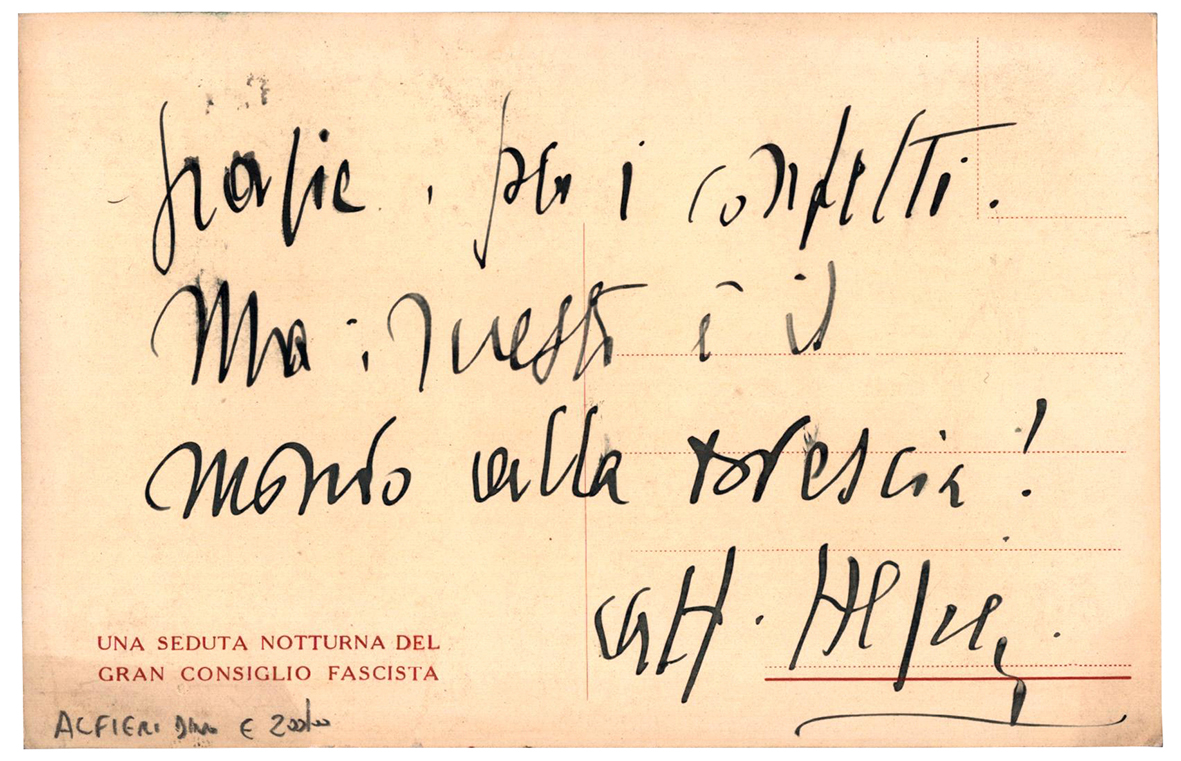 Grazie, per i confetti.
Ma: questo è il
mondo alla rovescia!
aff. Alfieri.
UNA SEDUTA NOTTURNA DEL
GRAN CONSIGLIO FASCISTA
ALFIERI Dino € 200,00